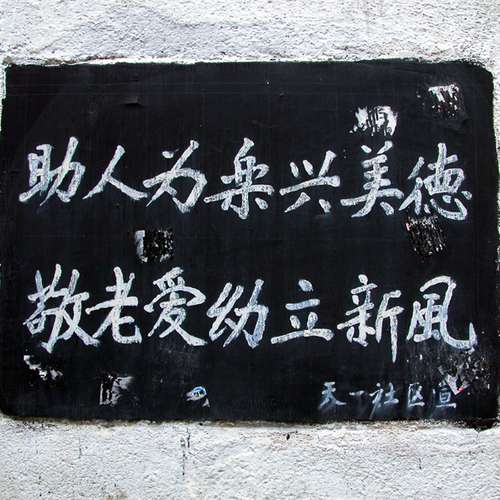 助人为乐兴美德
敬老爱幼立新風
天一社区宣